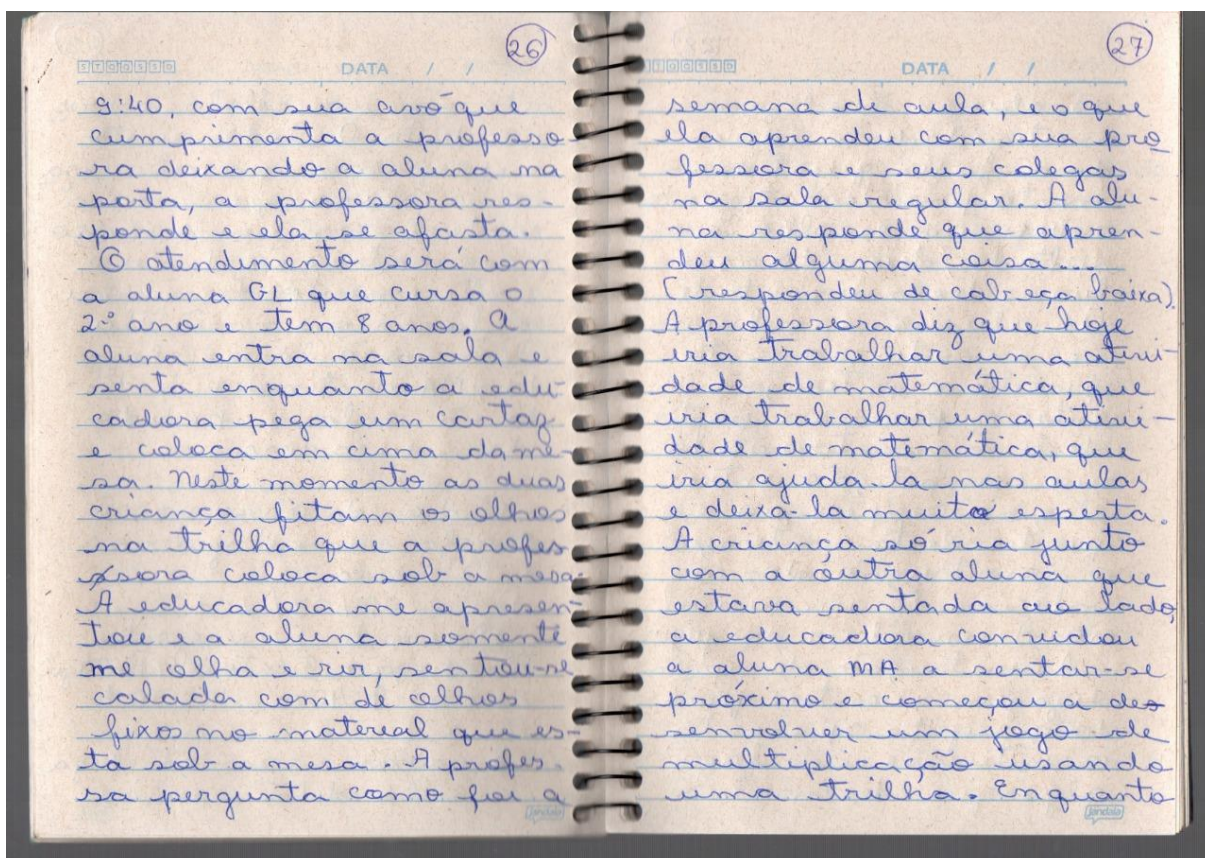 26
DATA / /
9:40, com sua avó que
cumprimenta a professo-
ra deixando a aluna na
porta, a professora res-
ponde e ela se afasta.
O atendimento será com
a aluna GL que cursa o
2º ano e tem 8 anos. A
aluna entra na sala e
senta enquanto a edu-
cadora pega um cartaz
e coloca em cima da me-
sa. Neste momento as duas
criança fitam os olhos
na trilha que a profes-
sora coloca sob a mesa.
A educadora me apresen-
tou e a aluna somente
me olha e rir, sentou-se
calada com de olhos
fixos no matereal que es-
ta sob a mesa. A profes-
sa pergunta como foi a
jandaia
27
DATA / /
semana de aula, e o que
ela aprendeu com sua pro
fessora e seus colegas
na sala regular. A alu-
na responde que apren-
deu alguma coisa...
(respondeu de cabeça baixa).
A professora diz que hoje
iria trabalhar uma ativi-
dade de matemática, que
iria trabalhar uma ativi-
dade de matemática, que
iria ajuda-la nas aulas
e deixá-la muito esperta.
A criança só ria junto
com a outra aluna que
estava sentada ao lado,
a educadora convidou
a aluna MA a sentar-se
próximo e começou a des
senvolver um jogo de
multiplicação usando
uma trilha. Enquanto
jandaia